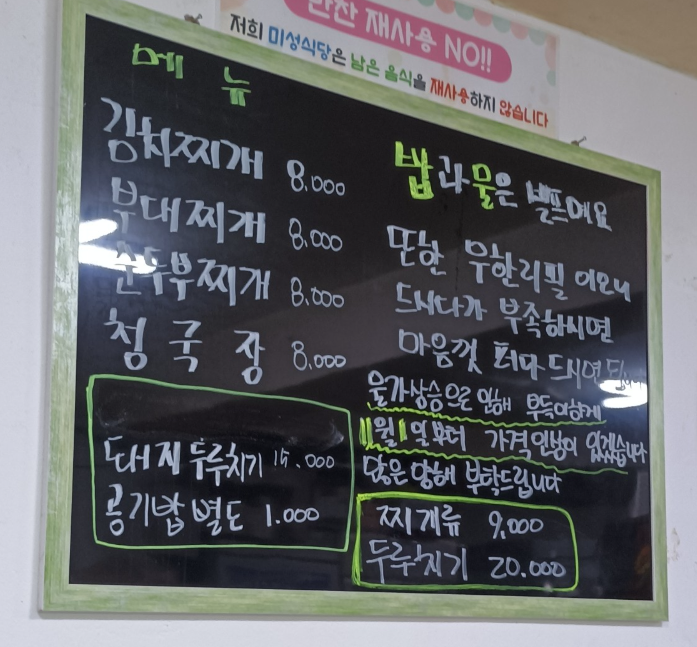 반찬 재사용 NO!!
저희 미성식당은 남은 음식을 재사용하지 않습니다
메 뉴
김치찌개 8.000
부대찌개 8.000
순두부찌개 8.000
청 국 장 8.000
돼지 두루치기 15.000
공기밥 별도 1.000
밥과 물은 셀프에요
또한 무한리필 이오니
드시다가 부족하시면
마음껏 퍼다 드시면
물가상승으로 인해 부득이하게
11월1일부터 가격인상이 있겠습니다
많은 양해 부탁드립니다
찌개류 9,000
두루치기 20.000